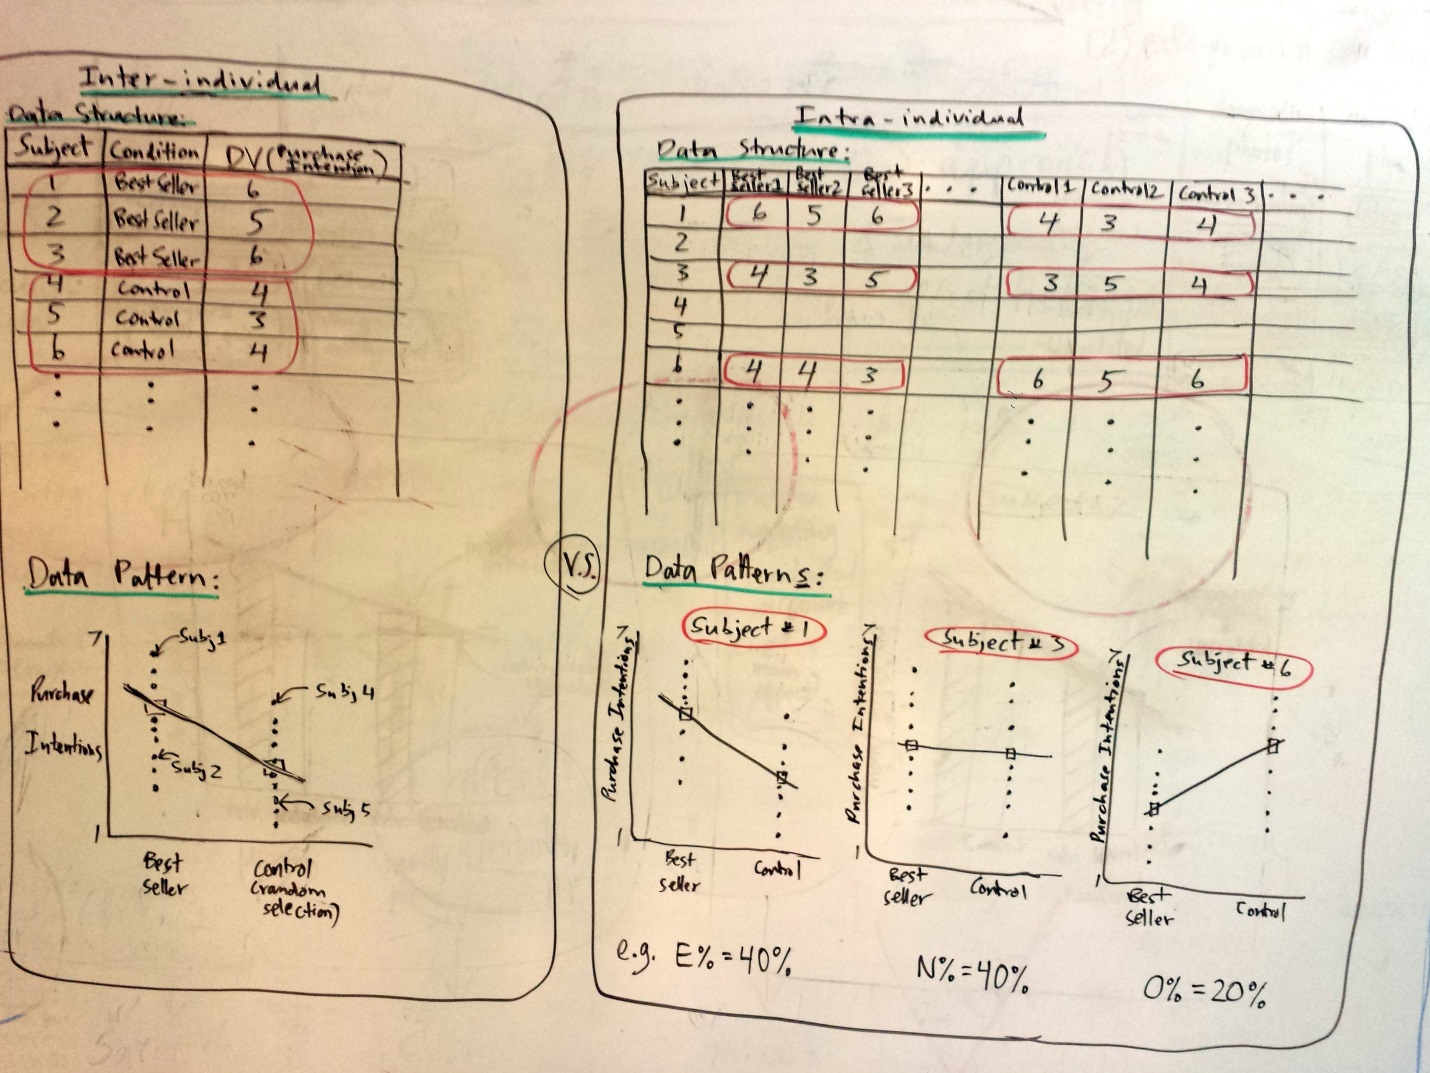 Inter-individual
Data Structure:
Subject Condition DV (Purchase Intention)
1 Best Seller 6
2 Best Seller 5
3 Best Seller 6
4 Control 4
5 Control 3
6 Control 4
Data Pattern:
7
Subj 1
Purchase
Subj 4
Intentions
Subj 2
Subj 5
1
Best
seller
Control
(random
selection)
V.S.
Intra-individual
Data Structure:
Subject Best seller1 Best seller2 Best seller3 . . . Control 1 Control 2 Control 3 . . .
1 6 5 6 4 3 4
2
3 4 3 5 3 5 4
4
5
6 4 4 3 6 5 6
Data Patterns:
Subject #1
7
Purchase Intentions
1
Best
seller
Control
Subject #3
7
Purchase Intentions
1
Best
seller
Control
Subject #6
7
Purchase Intentions
1
Best
seller
Control
e.g. E%=40%
N%=40%
O%=20%